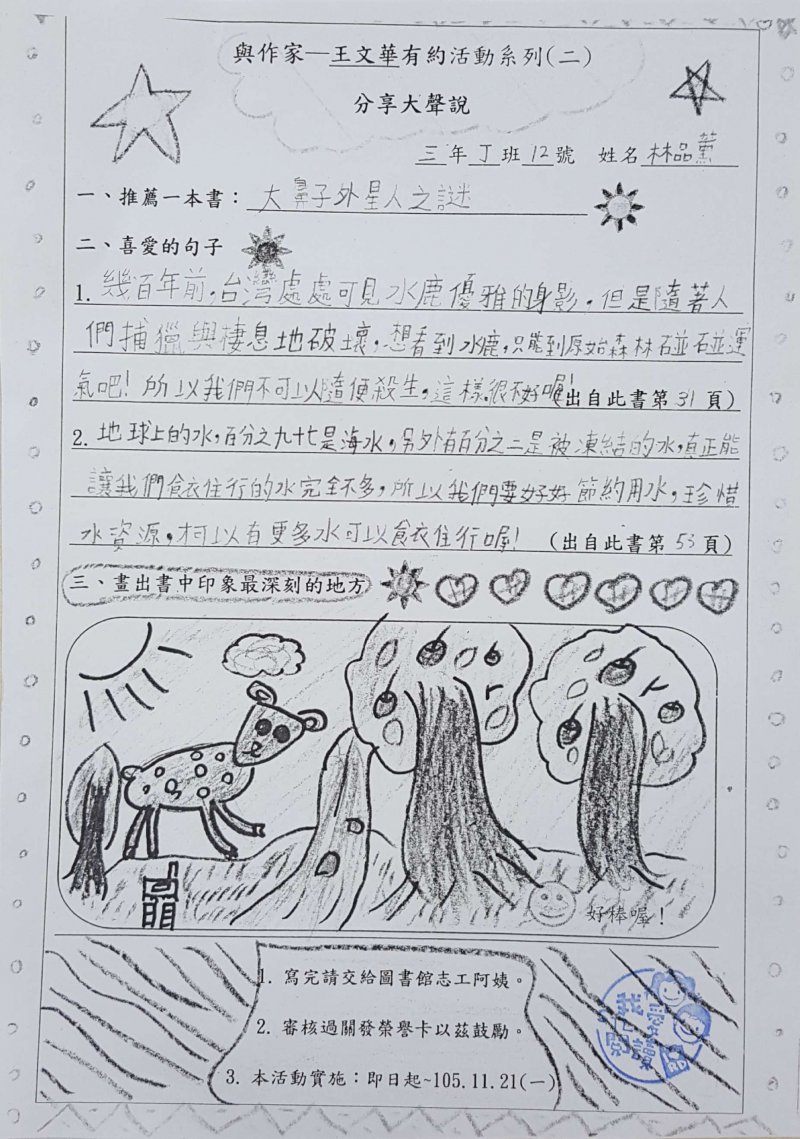 與作家—王文華有約活動系列(二)
分享大聲說
三年丁班12號 姓名 林品薰
一、推薦一本書：大鼻子外星人之謎
二、喜愛的句子
1. 幾百年前，台灣處處可見水鹿優雅的身影。但是隨著人
們捕獵與棲息地破壞，想看到水鹿，只能到原始森林碰碰運
氣吧！所以我們不可以隨便殺生，這樣很不好喔！(出自此書第31頁)
2. 地球上的水，百分之九十七是海水，另外有百分之二是被凍結的水，真正能
讓我們食衣住行的水完全不多，所以我們要好好節約用水，珍惜
水資源，才以有更多水可以食衣住行喔！(出自此書第53頁)
三、畫出書中印象最深刻的地方
好棒喔！
1. 寫完請交給圖書館志工阿姨。
2. 審核過關發榮譽卡以茲鼓勵。
3. 本活動實施：即日起~105.11.21(一)
我愛閱讀